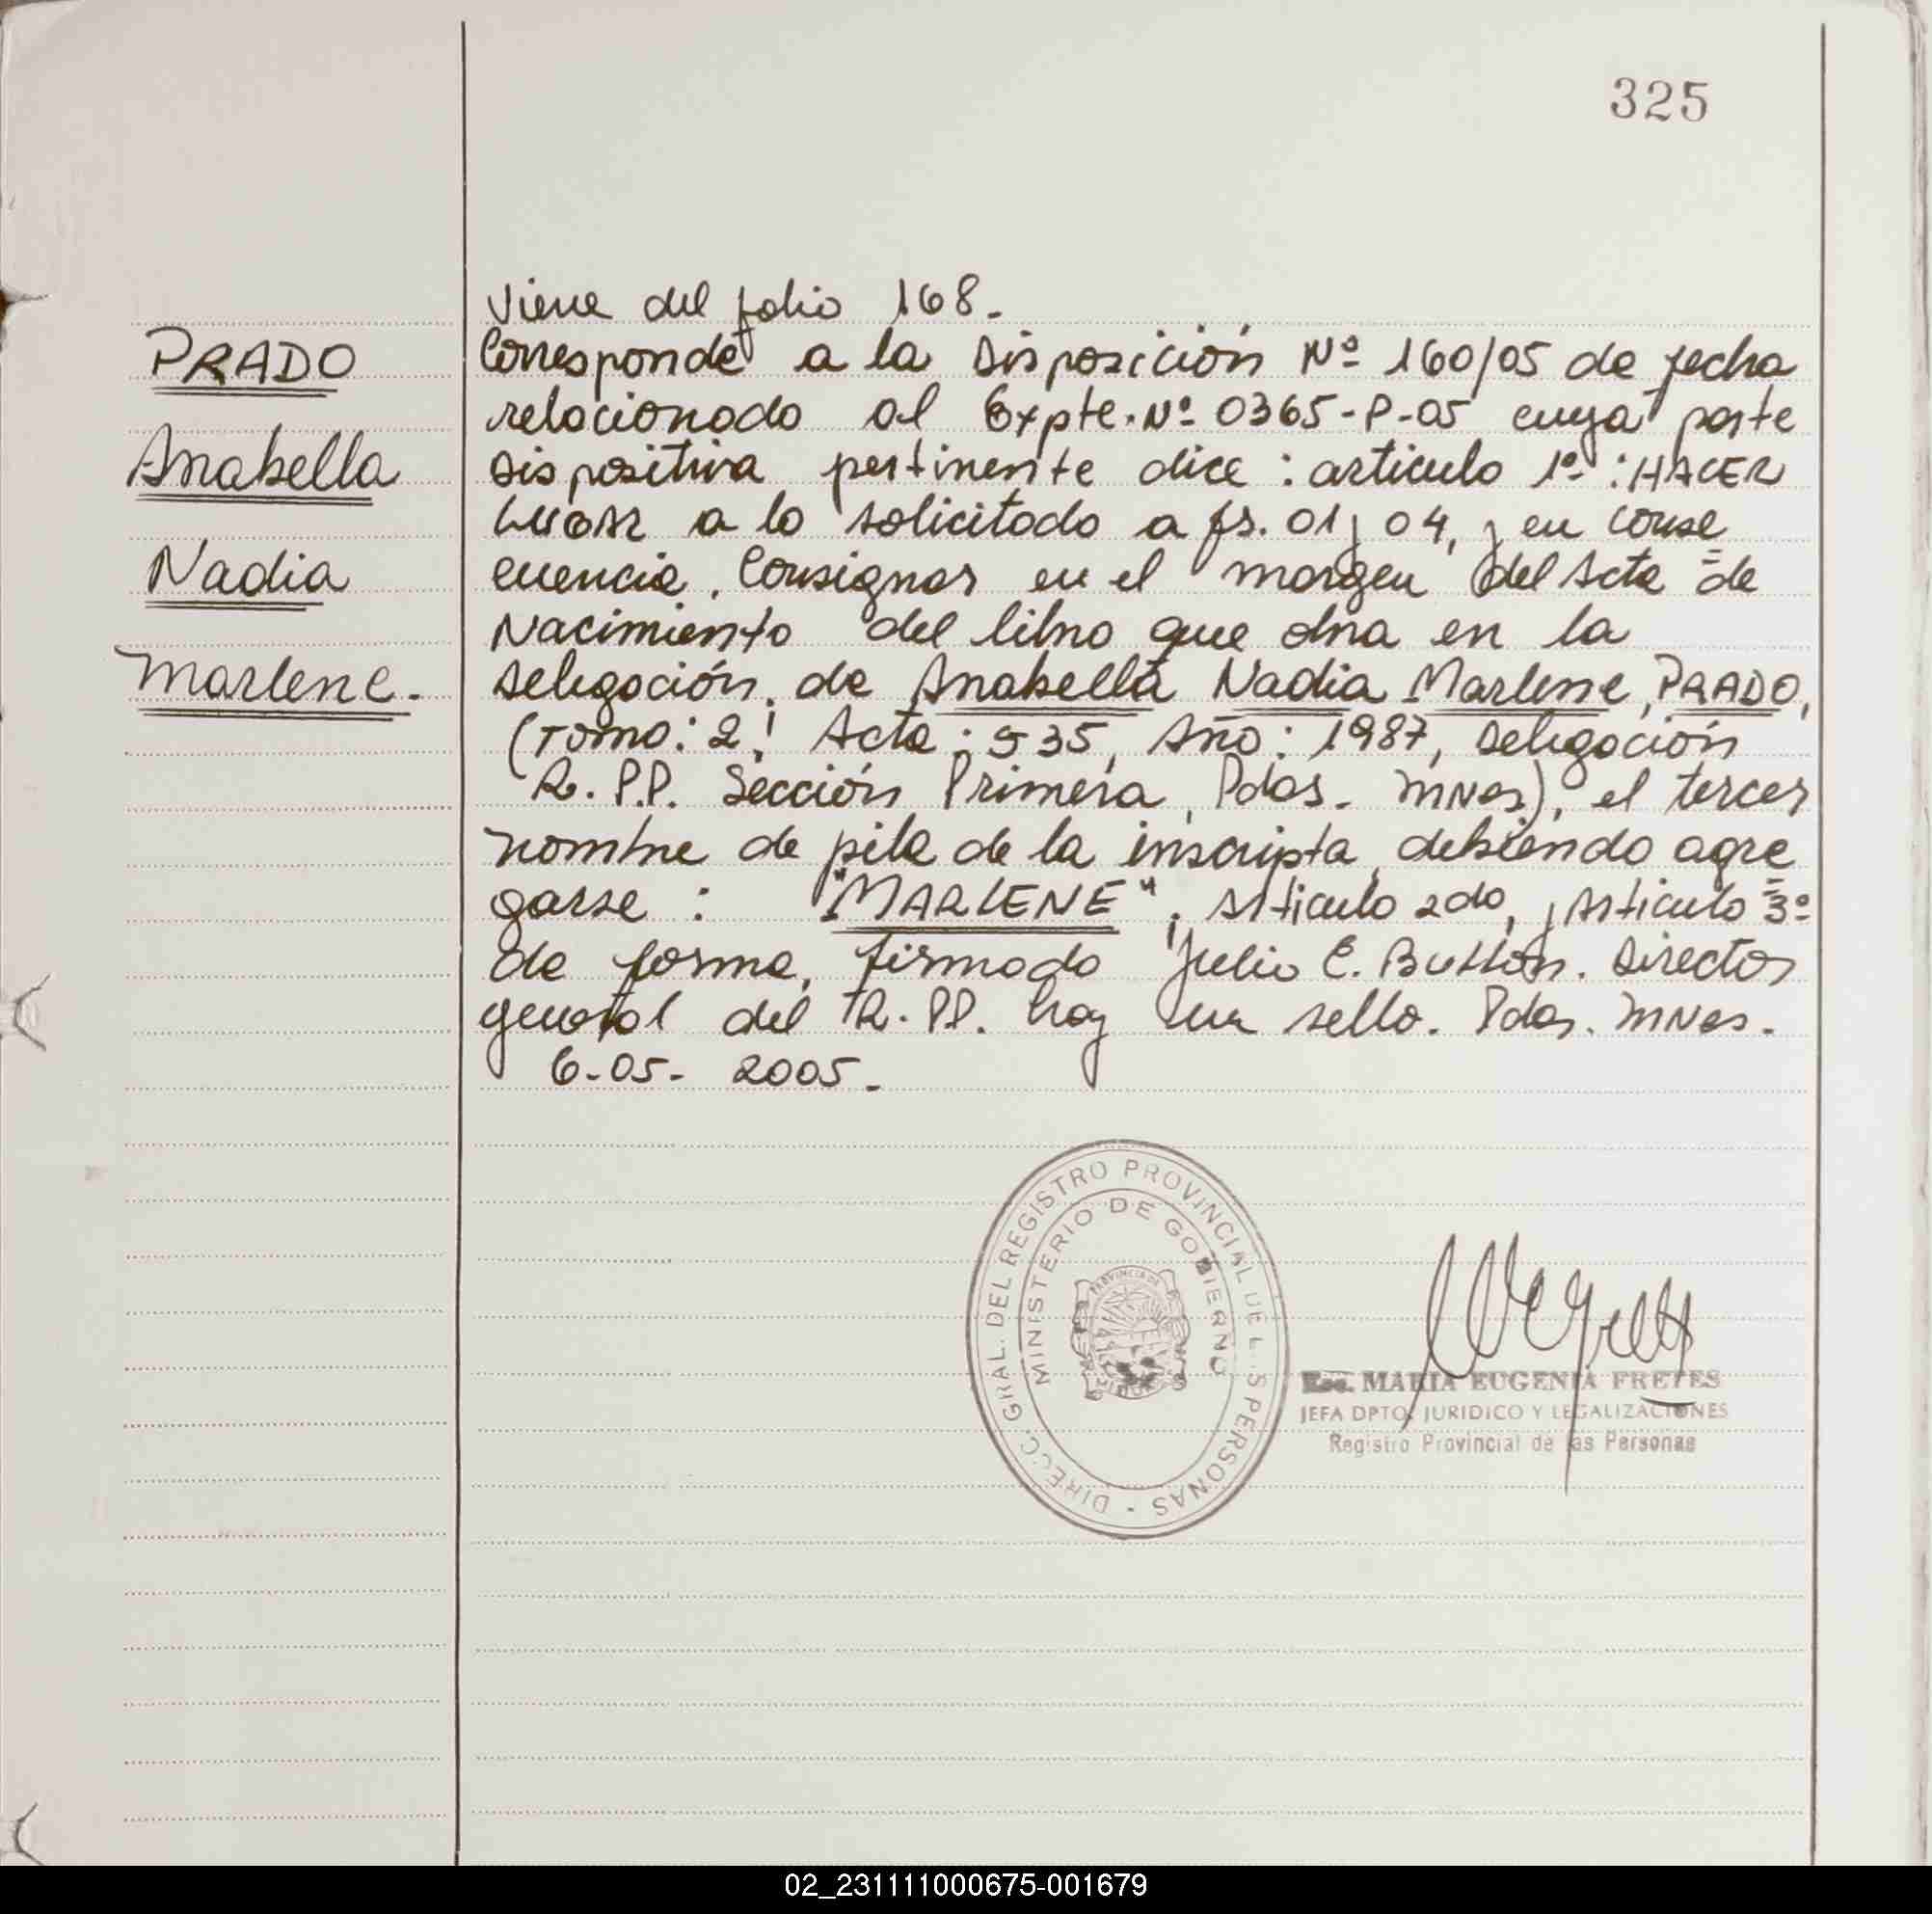 325
Viene del folio 168.
PRADO
Corresponde a la Disposición Nº 160/05 de fecha
relacionado al Expte. Nº 0365-P-05 cuya parte
Anabella
dispositiva pertinente dice: articulo 1º: HACER
LUGAR a lo solicitado a fs. 01 y 04, y en conse
Nadia
cuencia, Consignar en el margen del Acta de
Nacimiento del libro que obra en la
Marlene.-
delegación, de Anabella Nadia Marlene, PRADO,
(Tomo: 2! Acta: 535, Año: 1987, delegación
R. P.P. Sección Primera, Pdas. Mnes), el tercer
nombre de pila de la inscripta, debiendo agre
garse: "MARLENE", Articulo 2do, y Articulo 3º
de forma, firmado Julio C. Director
general del R. PP. hay un sello. Pdas. Mnes.
6-05- 2005.-
DIRECC. GRAL. DEL REGISTRO PROVINCIAL DE L.S PERSONAS -
MINISTERIO DE GOBIERNO
PROVINCIA DE
Esc. MARIA EUGENIA FRETES
JEFA DPTO. JURIDICO Y LEGALIZACIONES
Registro Provincial de las Personas
02_231111000675-001679